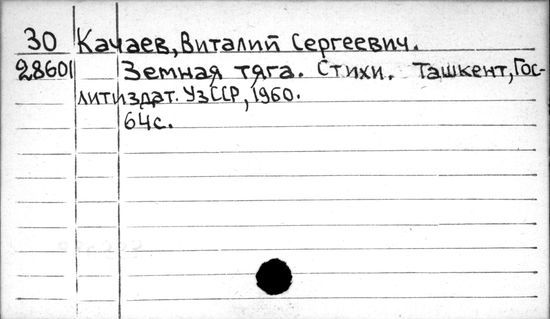 30 Качаев, Виталий Сергеевич.
28601 Земная тяга. Стихи. Ташкент, Гос-
литиздат. УзССР, 1960.
64с.